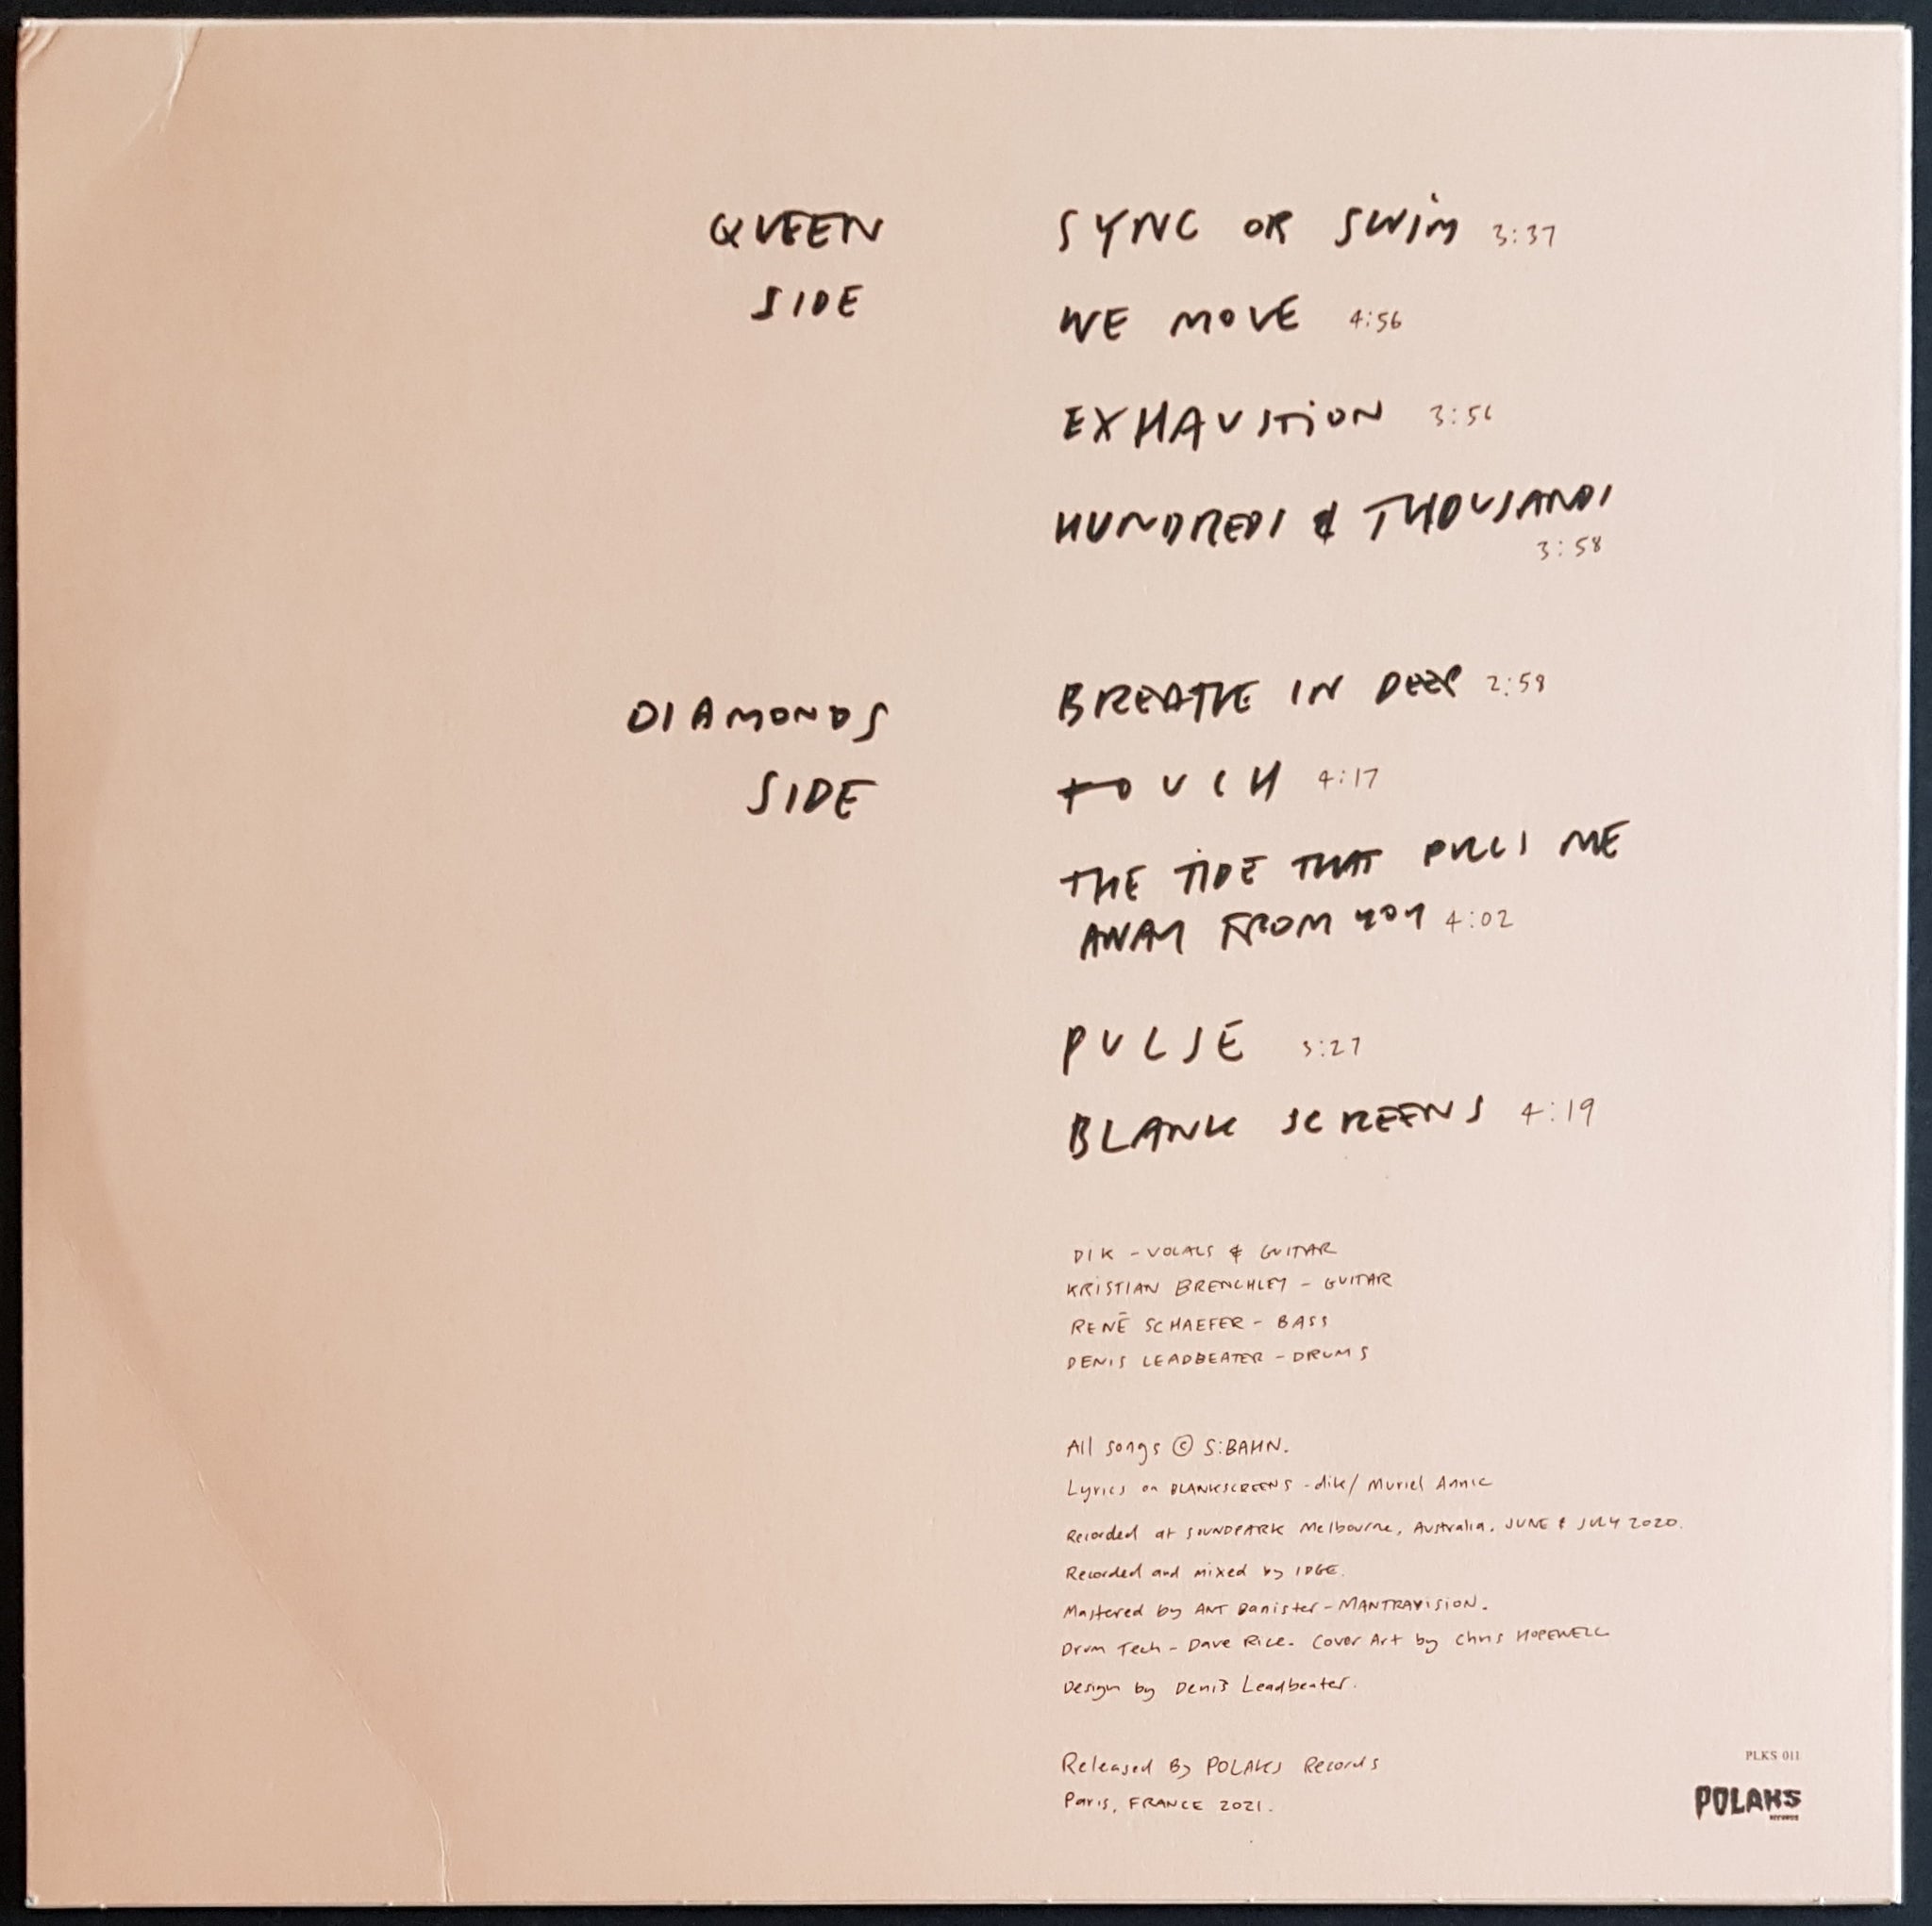 QUEEN
SIDE
SYNC OR SWIM 3:37
WE MOVE 4:56
EXHAUSTION 3:56
HUNDREDS & THOUSANDS
3:58
DIAMONDS
SIDE
BREATHE IN DEEP 2:58
TOUCH 4:17
THE TIDE THAT PULLS ME
AWAY FROM YOU 4:02
PULSE 3:27
BLANK SCREENS 4:19
DIK - VOCALS & GUITAR
KRISTIAN BRENCHLEY - GUITAR
RENÉ SCHAEFER - BASS
DENIS LEADBEATER - DRUMS
All songs © S:BAHN.
Lyrics on BLANKSCREENS - dik/ Muriel Annic
Recorded at SOUNDPARK Melbourne, Australia, JUNE & JULY 2020.
Recorded and mixed by IDGE.
Mastered by ANT Banister - MANTRAVISION.
Drum Tech - Dave Rice. Cover Art by Chris HOPEWELL
Design by Denis Leadbeater.
Released By POLAKS Records
Paris, FRANCE 2021.
PLKS 011
POLAKS
RECORDS